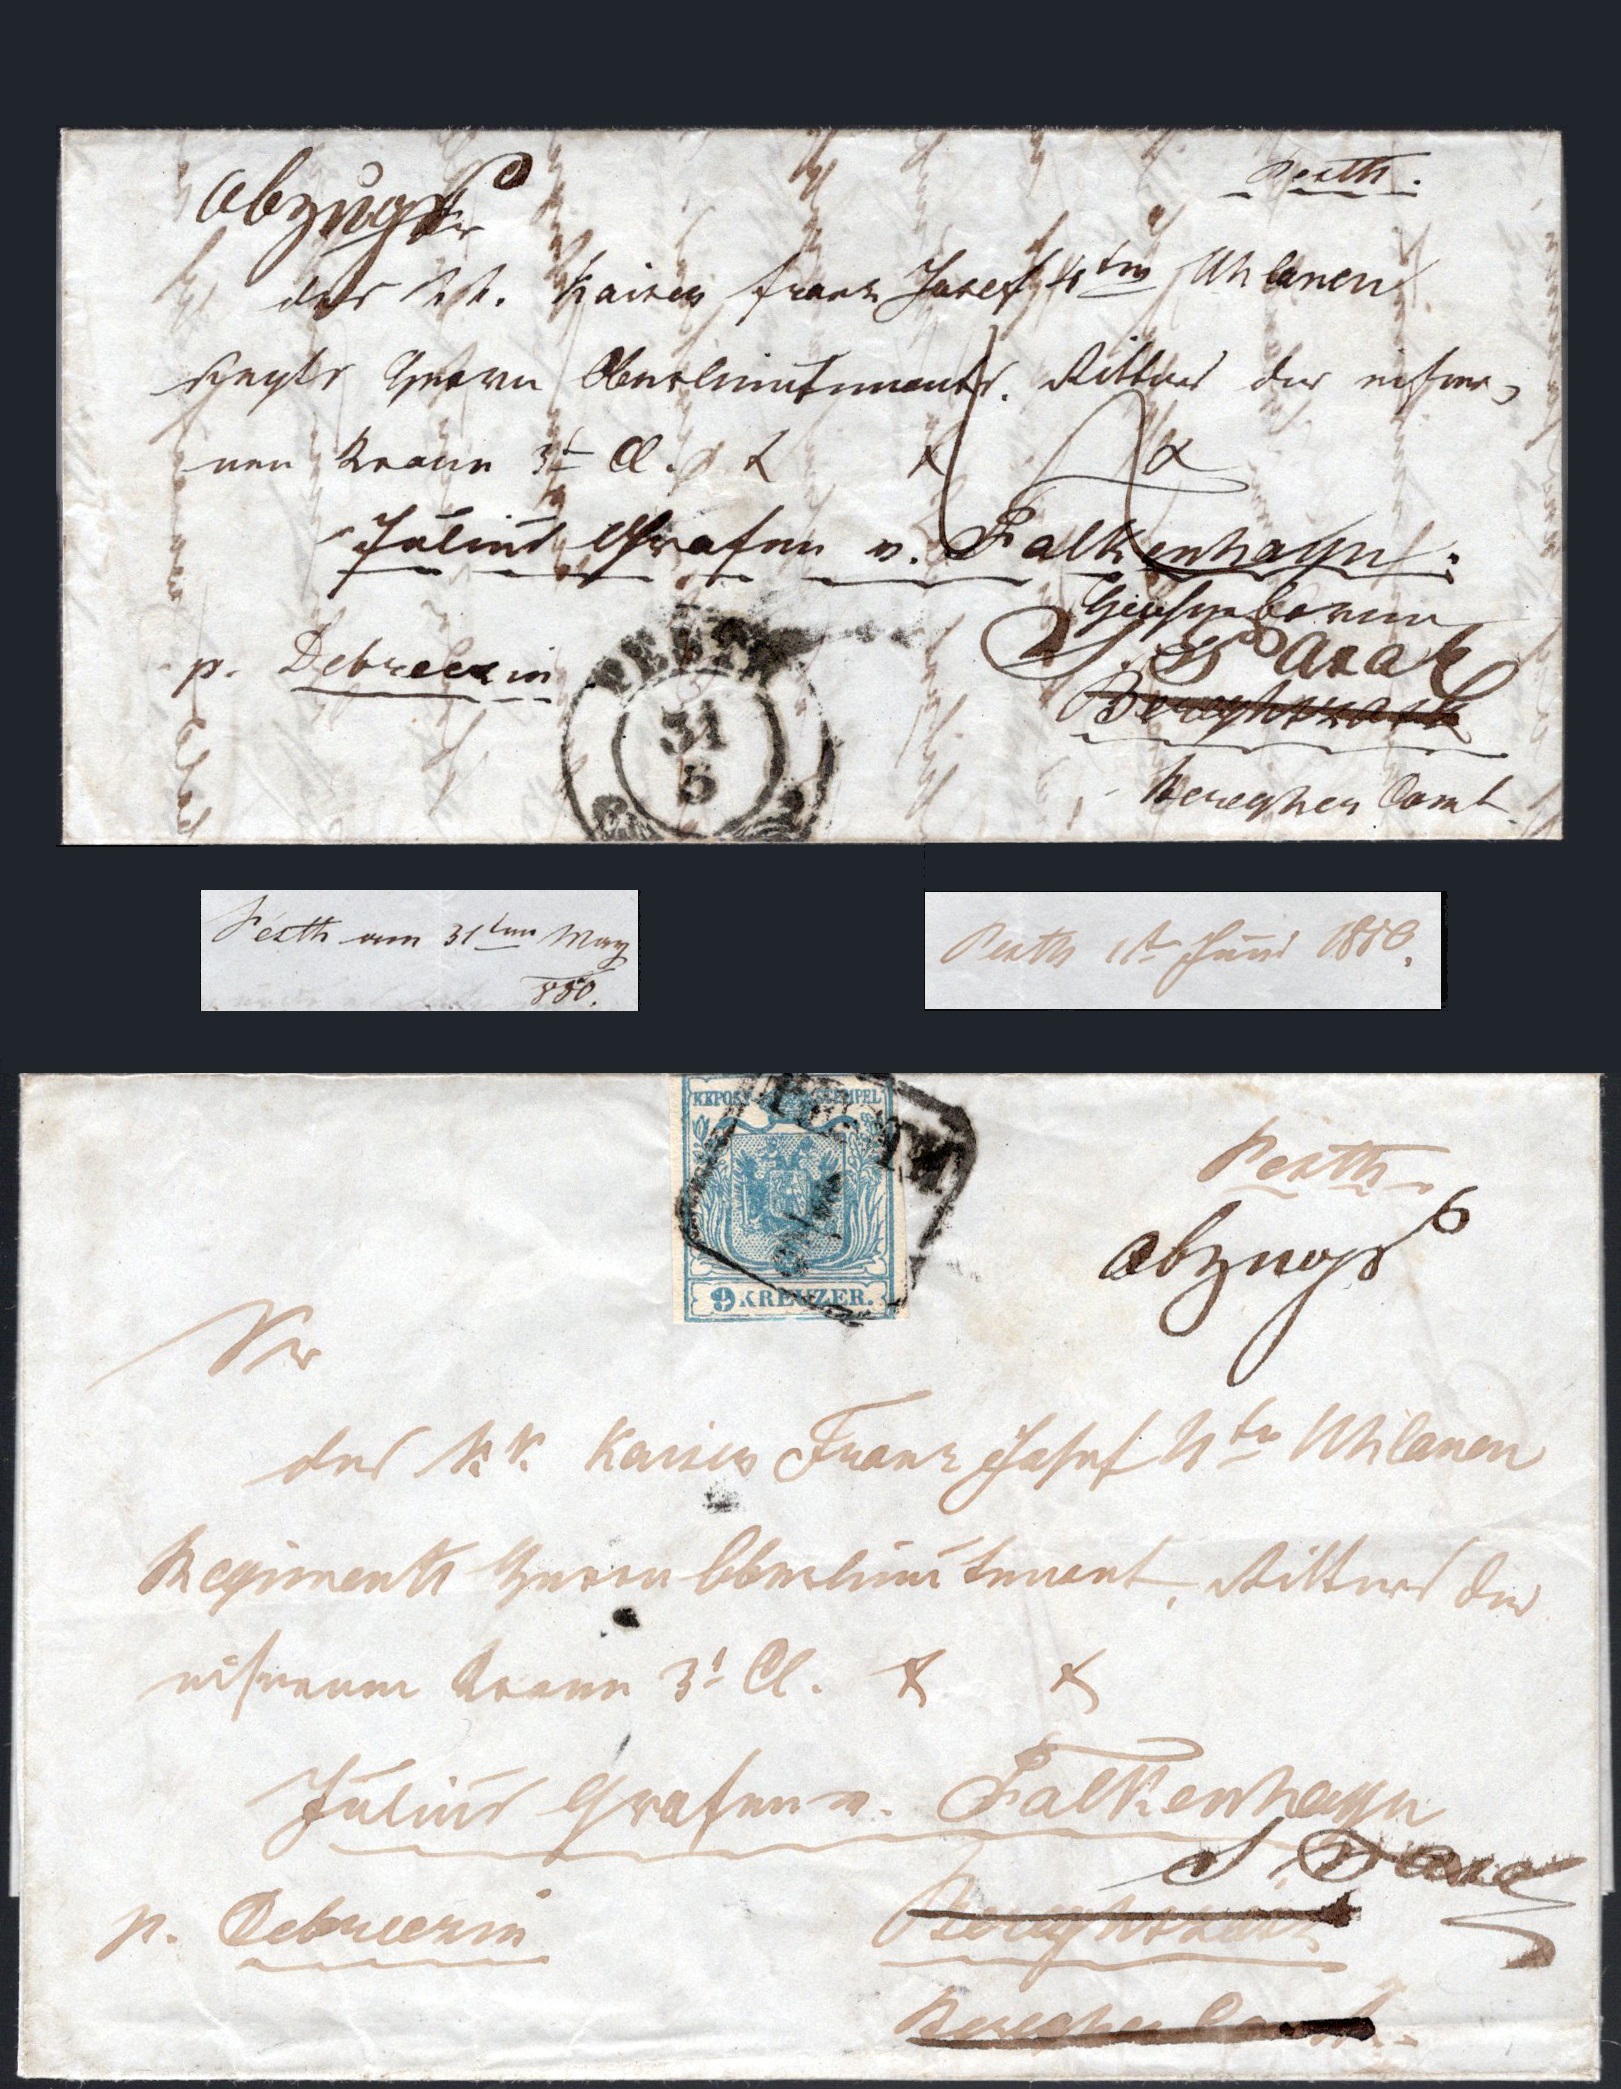 abzugs
Pesth.
des k. k. Kaiser Franz Josef 4ten Uhlanen
Regts Herrn Oberlieutenants. Ritters der eiser-
nen Krone 3t Cl.
Julius Grafen v. Falkenhayn.
Hochgeboren
p. Debreczin
S. Patak
Bereghszász
Peregher Comt.
PESTH
31
5
Pesth am 31ten May
850.
Pesth 1ten Juni 1850.
KKPOST-STEMPEL
9 KREUZER.
Pesth
abzugs
des k. k. Kaiser Franz Josef 4ten Uhlanen
Regiments Herrn Oberlieutenant, Ritters der
eisernen Krone 3t Cl.
Julius Grafen v. Falkenhayn
p. Debreczin
Bereghszász
Beregher Comt.